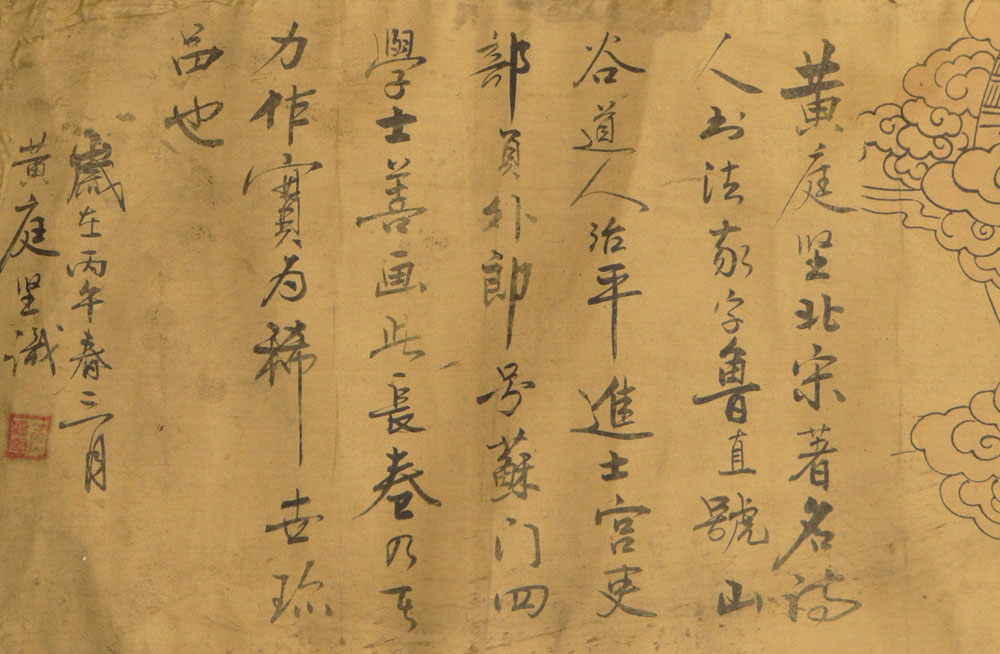 黄庭坚北宋著名诗
人书法家字魯直號山
谷道人治平進士宫吏
部員外郎号蘇门四
學士善画此長卷乃其
力作實为稀世珎
品也
歲在丙午春三月
黄庭坚識